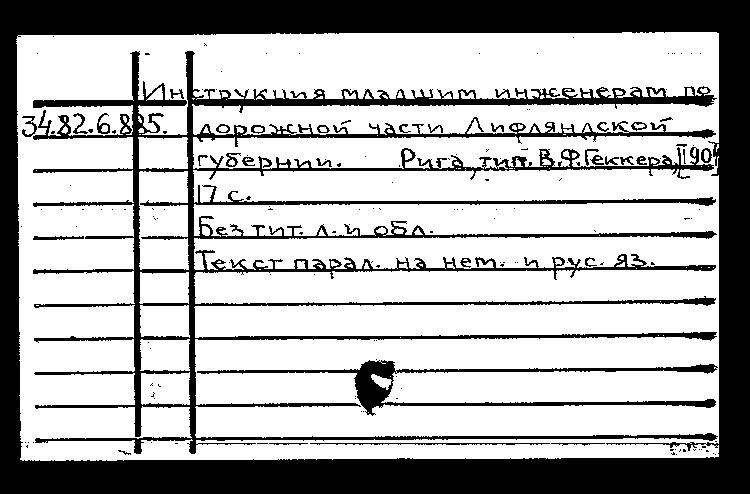 Инструкция младшим инженерам по
34.82.6.885. дорожной части Лифляндской
губернии. Рига, тип. В.Ф. Геккера,
17 с.
Без тит. л. и обл.
Текст парал. на нем. и рус. яз.